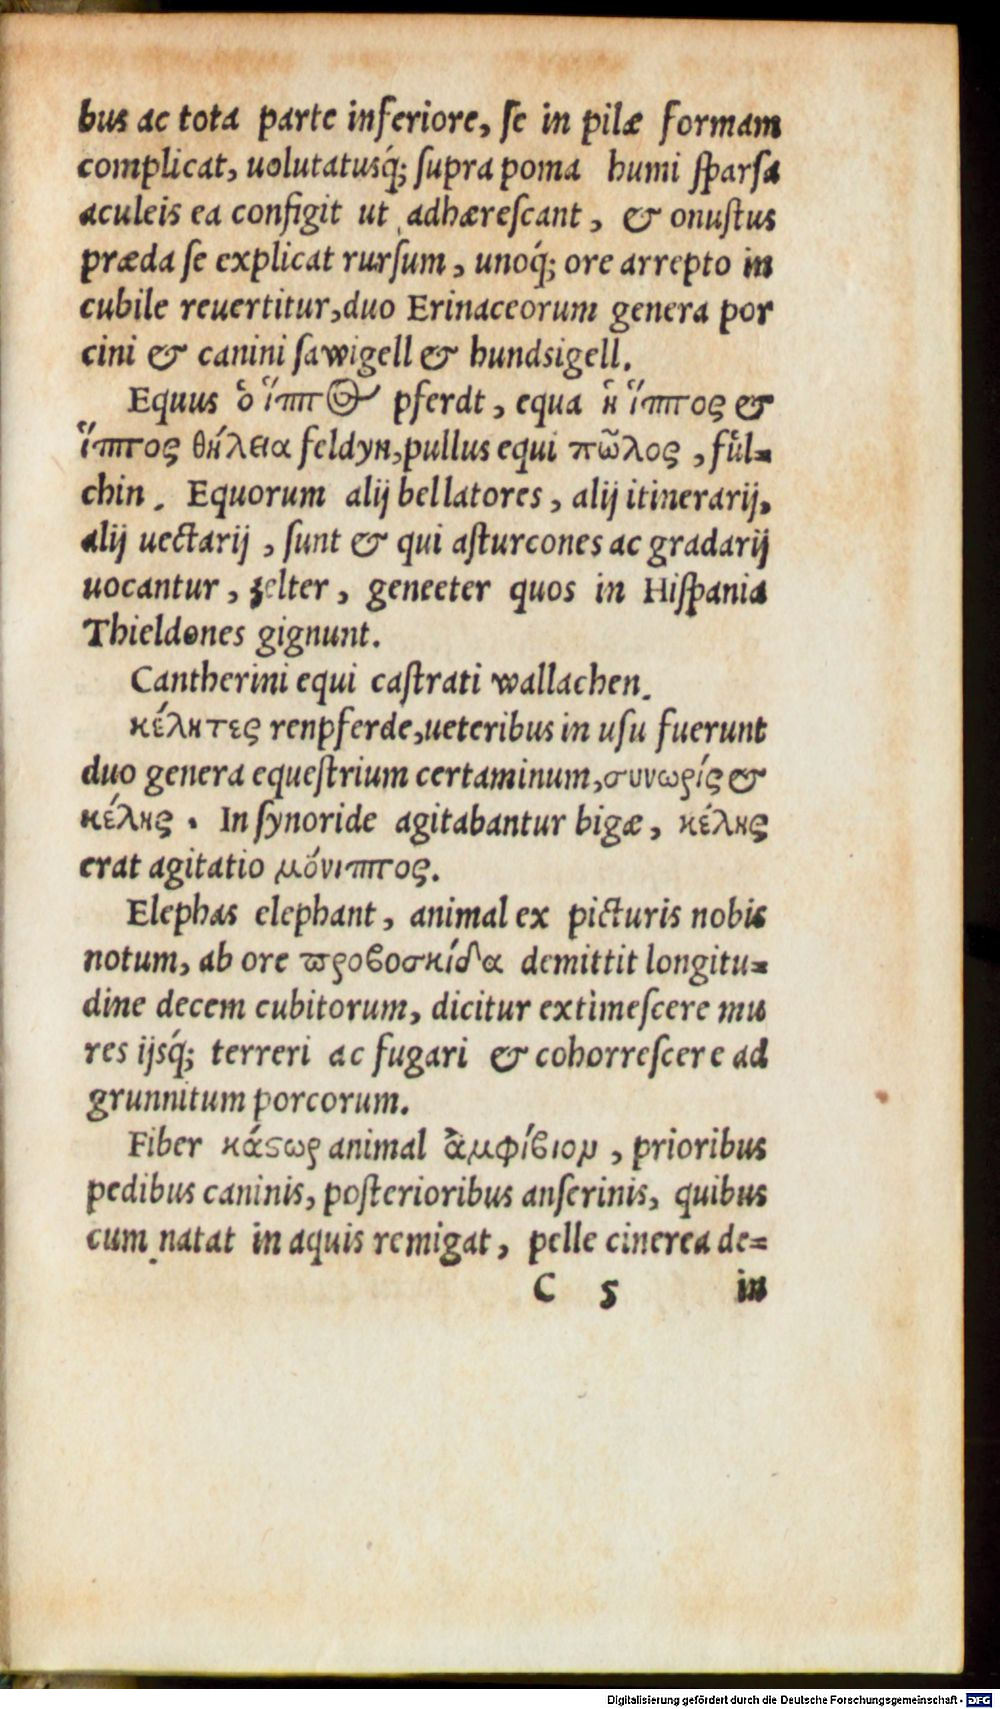 bus ac tota parte inferiore, ſe in pilæ formam
complicat, uolutatusq́; ſupra poma humi ſparſa
aculeis ea configit ut adhæreſcant, & onuſtus
præda ſe explicat rurſum, unoq́; ore arrepto in
cubile reuertitur, duo Erinaceorum genera por
cini & canini ſawigell & hundsigell.
Equus ὁ ἵππος pferdt, equa ἡ ἵππος &
ἵππος θήλεια feldyn, pullus equi πῶλος, fůl⸗
chin. Equorum alij bellatores, alij itinerarij,
alij uectarij, ſunt & qui aſturcones ac gradarij
uocantur, zelter, geneeter quos in Hiſpania
Thieldones gignunt.
Cantherini equi caſtrati wallachen.
κέλητες renpferde, ueteribus in uſu fuerunt
duo genera equeſtrium certaminum, συνωρίς &
κέλης. In ſynoride agitabantur bigæ, κέλης
erat agitatio μόνιππος.
Elephas elephant, animal ex picturis nobis
notum, ab ore προβοσκίδα demittit longitu⸗
dine decem cubitorum, dicitur extimeſcere mu
res ijsq́; terreri ac fugari & cohorreſcere ad
grunnitum porcorum.
Fiber κάϛωρ animal ἀμφίβιον, prioribus
pedibus caninis, poſterioribus anſerinis, quibus
cum natat in aquis remigat, pelle cinerea de⸗
C 5 in
Digitalisierung gefördert durch die Deutsche Forschungsgemeinschaft - DFG